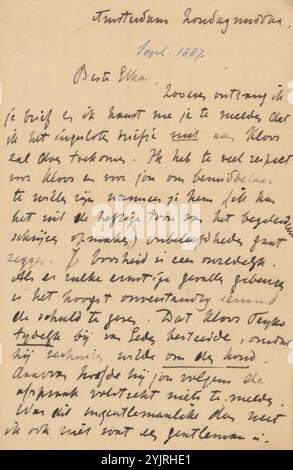 Amsterdam Zondagmiddag.
Sept. 1887.
Beste Elha.
Zooeven ontvang ik
je brief en ik haast me je te melden dat
ik het ingesloten briefje niet aan Kloos
zal doen toekomen. Ik heb te veel respect
voor Kloos en voor jou om bemiddelaar
te willen zijn wanneer je hem (ik kan
het uit de heftige toon van het
schrijven opmaken) onbeleefdheden gaat
zeggen. Je boosheid is zeer onredelijk
Als er zulke ernstige gevallen gebeuren
is het hoogst onverstandig iemand
de schuld te geven. Dat Kloos
tijdelijk bij van Eeden besteedde, omdat
hij wilde van den hond.
daarvan hoefde hij jou volgens de
afspraak volstrekt niets te melden.
Was dit ungentlemanlike dan weet
ik ook niet wat een gentleman is.
alamy
Image ID: 2YJRHE1
www.alamy.com